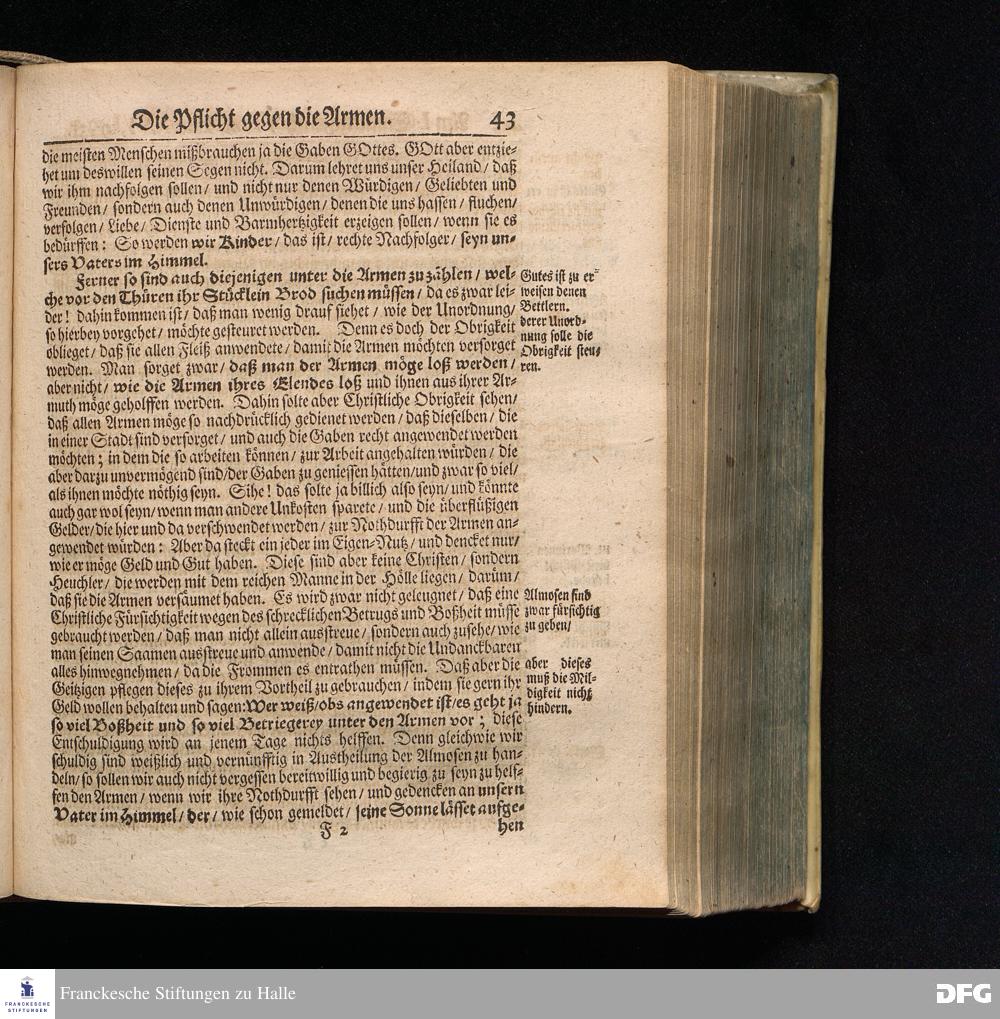 Die Pflicht gegen die Armen. 43
die meisten Menschen mißbrauchen ja die Gaben GOttes. GOtt aber entzie-
het um deswillen seinen Segen nicht. Darum lehret uns unser Heiland/ daß
wir ihm nachfolgen sollen/ und nicht nur denen Würdigen/ Geliebten und
Freunden/ sondern auch denen Unwürdigen/ denen die uns hassen/ fluchen/
verfolgen/ Liebe/ Dienste und Barmhertzigkeit erzeigen sollen/ wenn sie es
bedürffen: So werden wir Kinder/ das ist/ rechte Nachfolger/ seyn un-
sers Vaters im Himmel.
Ferner so sind auch diejenigen unter die Armen zu zählen/ wel-
che vor den Thüren ihr Stücklein Brod suchen müssen/ da es zwar lei-
der! dahin kommen ist/ daß man wenig drauf siehet/ wie der Unordnung/
so hierbey vorgehet/ möchte gesteuret werden. Denn es doch der Obrigkeit
oblieget/ daß sie allen Fleiß anwendete/ damit die Armen möchten versorget
werden. Man sorget zwar/ daß man der Armen möge loß werden/
aber nicht/ wie die Armen ihres Elendes loß und ihnen aus ihrer Ar-
muth möge geholffen werden. Dahin solte aber Christliche Obrigkeit sehen/
daß allen Armen möge so nachdrücklich gedienet werden/ daß dieselben/ die
in einer Stadt sind versorget/ und auch die Gaben recht angewendet werden
möchten; in dem die so arbeiten können/ zur Arbeit angehalten würden/ die
aber darzu unvermögend sind/ der Gaben zu geniessen hätten/ und zwar so viel/
als ihnen möchte nöthig seyn. Sihe! das solte ja billich also seyn/ und könnte
auch gar wol seyn/ wenn man andere Unkosten sparete/ und die überflüßigen
Gelder/ die hier und da verschwendet werden/ zur Nothdurfft der Armen an-
gewendet würden: Aber da steckt ein jeder im Eigen-Nutz/ und dencket nur/
wie er möge Geld und Gut haben. Diese sind aber keine Christen/ sondern
Heuchler/ die werden mit dem reichen Manne in der Hölle liegen/ darüm/
daß sie die Armen versäumet haben. Es wird zwar nicht geleugnet/ daß eine
Christliche Fürsichtigkeit wegen des schrecklichen Betrugs und Boßheit müsse
gebraucht werden/ daß man nicht allein ausstreue/ sondern auch zusehe/ wie
man seinen Saamen ausstreue und anwende/ damit nicht die Undanckbaren
alles hinwegnehmen/ da die Frommen es entrathen müssen. Daß aber die
Geitzigen pflegen dieses zu ihrem Vortheil zu gebrauchen/ indem sie gern ihr
Geld wollen behalten und sagen: Wer weiß/ obs angewendet ist/ es geht ja
so viel Boßheit und so viel Betriegerey unter den Armen vor; diese
Entschuldigung wird an jenem Tage nichts helffen. Denn gleichwie wir
schuldig sind weißlich und vernünfftig in Austheilung der Almosen zu han-
deln/ so sollen wir auch nicht vergessen bereitwillig und begierig zu seyn zu helf-
fen den Armen/ wenn wir ihre Nothdurfft sehen/ und gedencken an unsern
Vater im Himmel/ der/ wie schon gemeldet/ seine Sonne lässet aufge-
F 2 hen
Gutes ist zu er-
weisen denen
Bettlern.
derer Unord-
nung solle die
Obrigkeit steu-
ren.
Almosen sind
zwar fürsichtig
zu geben/
aber dieses
muß die Mil-
digkeit nicht
hindern.
FRANCKESCHE
STIFTUNGEN
Franckesche Stiftungen zu Halle
DFG